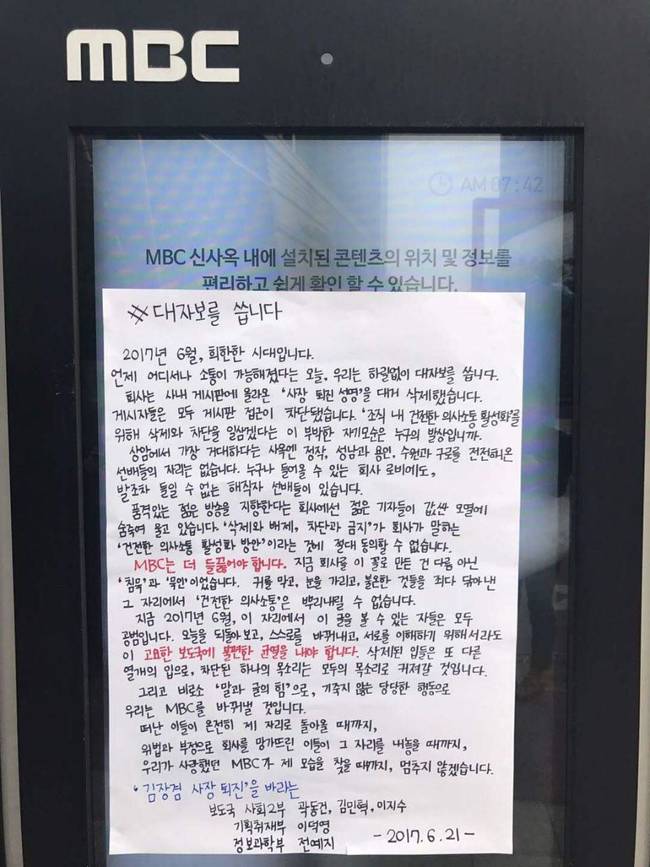 MBC
AM 07:42
MBC 신사옥 내에 설치된 콘텐츠의 위치 및 정보를
편리하고 쉽게 확인 할 수 있습니다.
※ 대자보를 씁니다
2017년 6월, 희한한 시대입니다.
언제 어디서나 소통이 가능해졌다는 오늘, 우리는 하릴없이 대자보를 씁니다.
회사는 사내 게시판에 올라온 '사장 퇴진 성명'을 대거 삭제했습니다.
게시자들은 모두 게시판 접근이 차단됐습니다. '조직 내 건전한 의사소통 활성화'를
위해 삭제와 차단을 일삼겠다는 이 부박한 자기모순은 누구의 발상입니까.
상암에서 가장 거대하다는 사옥엔 정작, 성남과 용인, 수원과 구로를 전전해온
선배들의 자리는 없습니다. 누구나 들어올 수 있는 회사 로비에도,
발조차 들일 수 없는 해직자 선배들이 있습니다.
품격있는 젊은 방송을 지향한다는 회사에선 젊은 기자들이 값싼 모멸에
숨죽여 울고 있습니다. '삭제와 배제, 차단과 금지'가 회사가 말하는
'건전한 의사소통 활성화 방안'이라는 것에 절대 동의할 수 없습니다.
MBC는 더 들끓어야 합니다. 지금 회사를 이 꼴로 만든 건 다름 아닌
'침묵'과 '묵인'이었습니다. 귀를 막고, 눈을 가리고, 불온한 것들을 죄다 닦아낸
그 자리에서 '건전한 의사소통'은 뿌리내릴 수 없습니다.
지금 2017년 6월, 이 자리에서 이 글을 볼 수 있는 자들은 모두
공범입니다. 오늘을 되돌아보고, 스스로를 바꾸내고, 서로를 이해하기 위해서라도
이 고요한 보도국에 불편한 균열을 내야 합니다. 삭제된 입들은 또 다른
열개의 입으로, 차단된 하나의 목소리는 모두의 목소리로 커져갈 것입니다.
그리고 비로소 '말과 글의 힘'으로, 기죽지 않는 당당한 행동으로
우리는 MBC를 바꾸낼 것입니다.
떠난 이들이 온전히 제 자리로 돌아올 때까지,
위법과 부정으로 회사를 망가뜨린 이들이 그 자리를 내놓을 때까지,
우리가 사랑했던 MBC가 제 모습을 찾을 때까지, 멈추지 않겠습니다.
'김장겸 사장 퇴진'을 바라는
보도국 사회2부 곽동건, 김민혁, 이지수
기획취재부 이덕영
정보과학부 전예지
-2017.6.21-